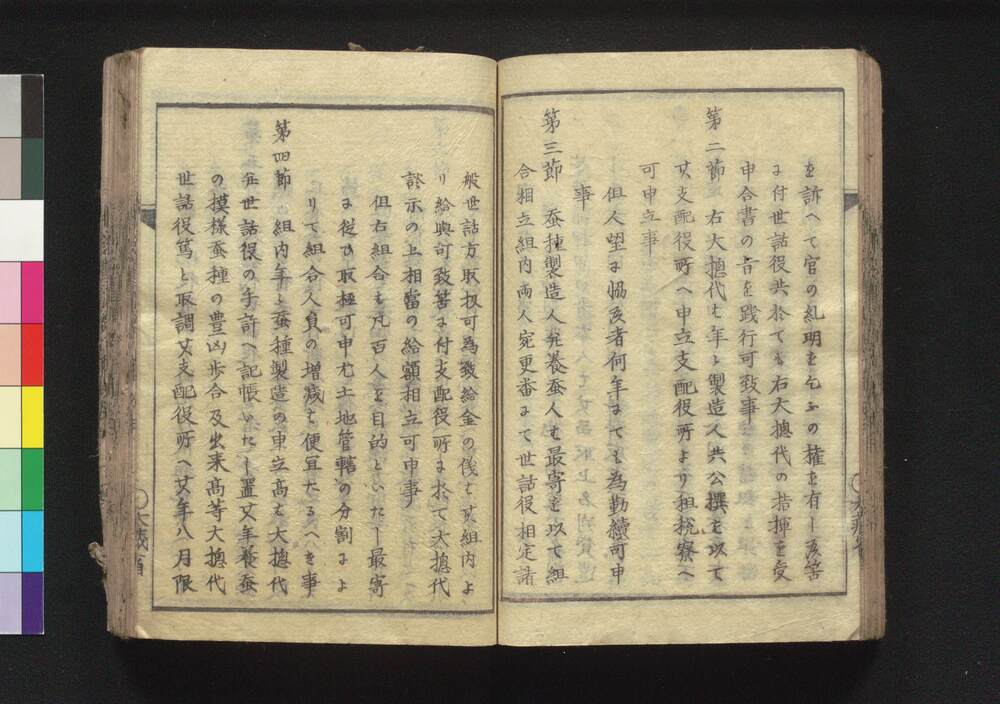 を訴へて官の糺明を乞ふの権を有し可く筈
に付世話役共於ても右大摠代の指揮を受
申合書の旨を践行可致事
第二節　右大摠代は年々製造人共公撰を以て
其支配役所へ申立支配役所より租税寮へ
可申立事
但人望に協候者何年までも為勤続可申
事
第三節　蚕種製造人並養蚕人も最寄を以て組
合相立組内両人宛更番にて世話役相定諸
般世話方取扱可為致給金の儀は其組内よ
り給与可致筈に付支配役所に於て大摠代
談示の上相当の給額相立可申事
但右組合は凡百人を目的といたし最寄
に従ひ取極可申尤土地管轄の分割によ
りて組合人員の増減は便宜たるへき事
第四節　組内年々蚕種製造の申立高は大摠代
並世話役の手許へ記帳いたし置其年養蚕
の摸様蚕種の豊凶歩合及出来高等大摠代
世話役篤と取調其支配役所へ其年八月限
大蔵省